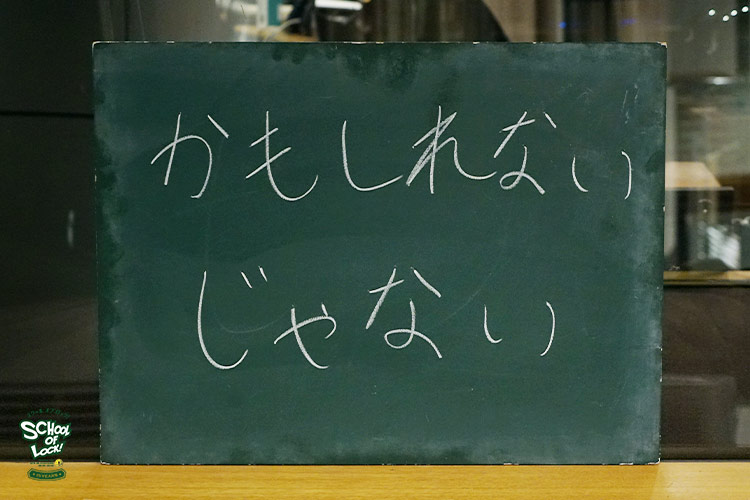 かもしれない
じゃない
SCHOOL
OF
LOCK!